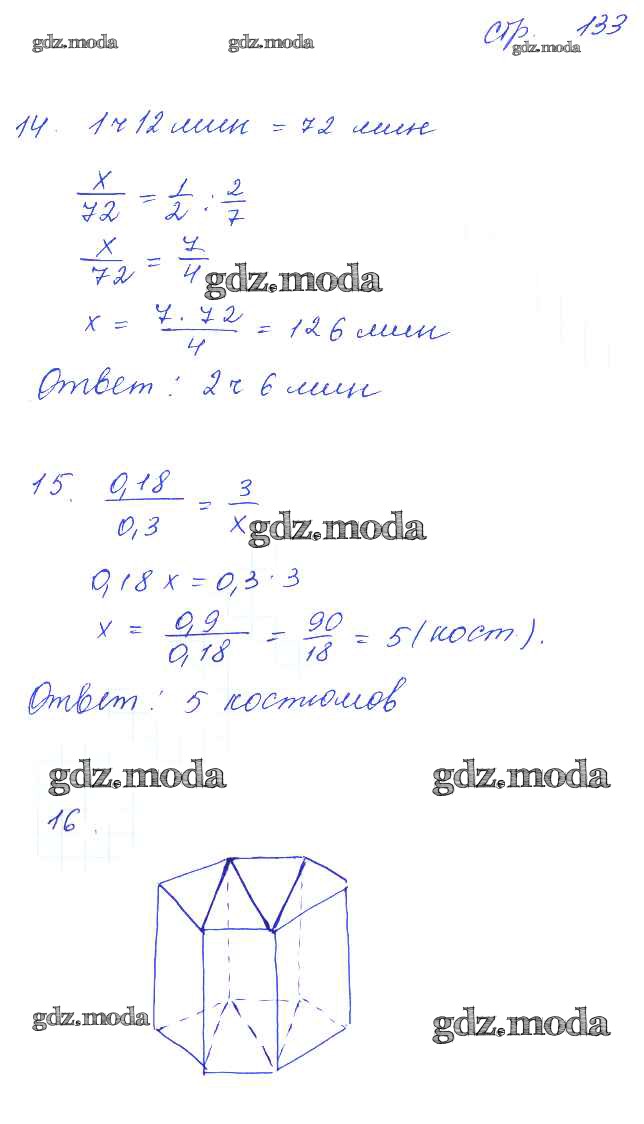 gdz.moda gdz.moda стр. 133
gdz.moda
14. 1 ч 12 мин = 72 мин
x/72 = 1/2 : 2/7
x/72 = 7/4
gdz.moda
x = 7 · 72/4 = 126 мин
Ответ: 2 ч 6 мин
15. 0,18/0,3 = 3/x
gdz.moda
0,18 x = 0,3 · 3
x = 0,9/0,18 = 90/18 = 5 (кост.).
Ответ: 5 костюмов
gdz.moda gdz.moda
16.
gdz.moda gdz.moda